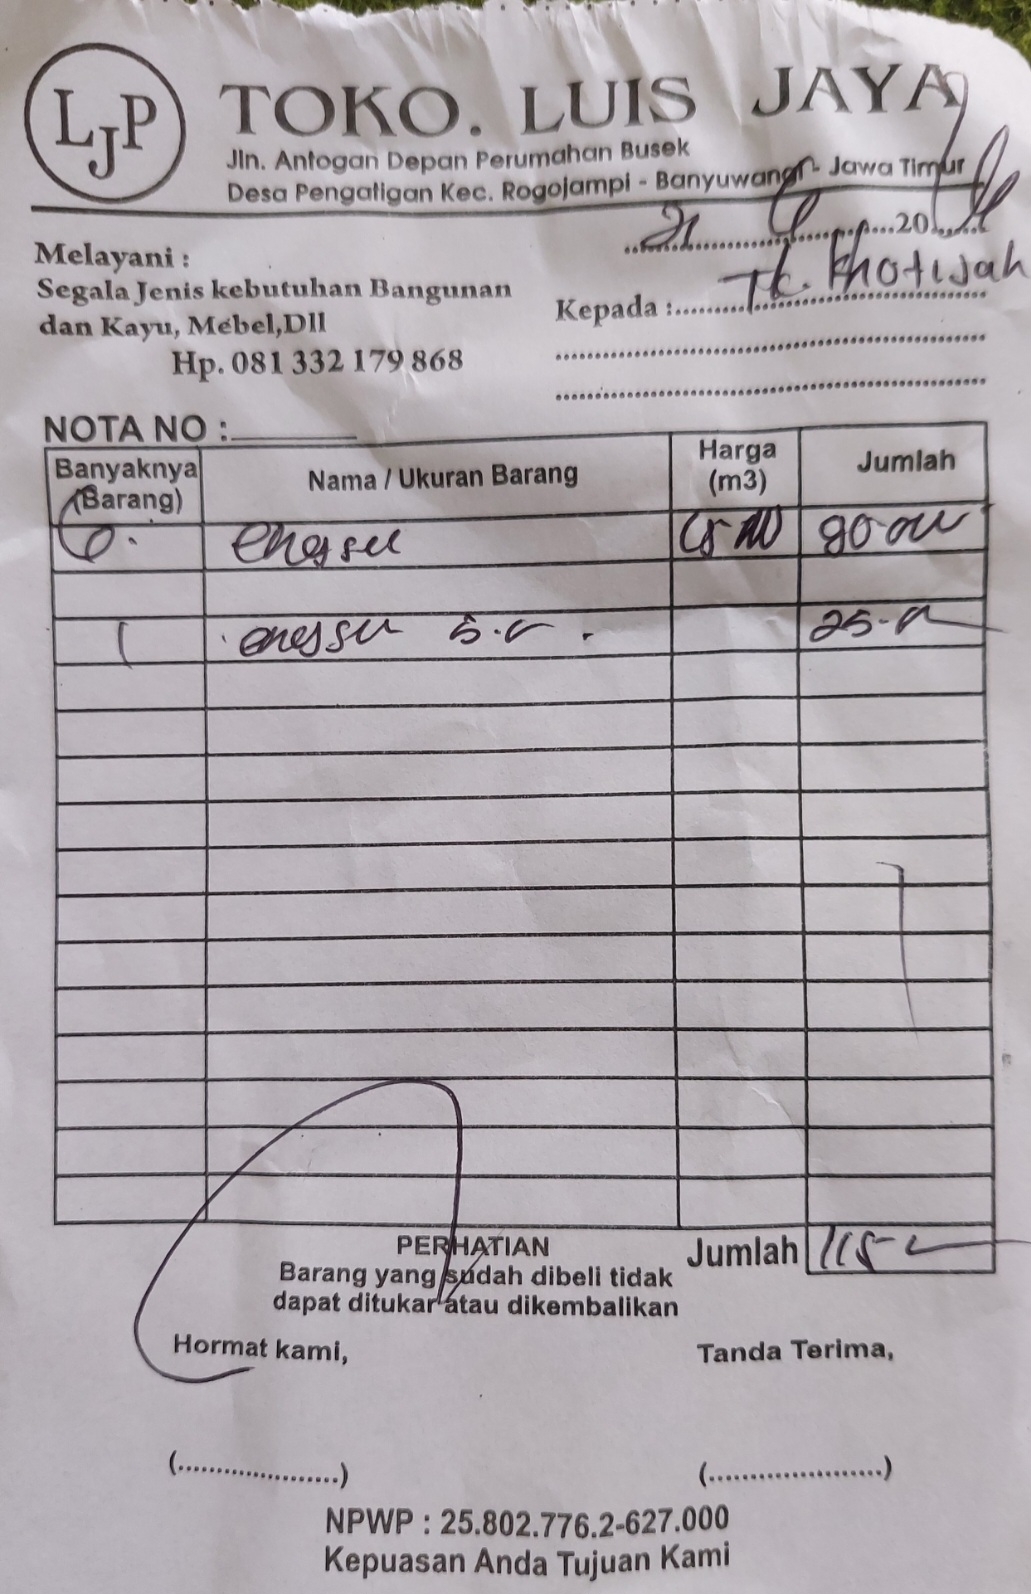 LJP
TOKO. LUIS JAYA
Jln. Antogan Depan Perumahan Busek
Desa Pengatigan Kec. Rogojampi - Banyuwangi - Jawa Timur
21 6 20
Melayani :
Segala Jenis kebutuhan Bangunan
dan Kayu, Mebel,Dll
Hp. 081 332 179 868
Kepada : Tk. Khotijah
NOTA NO :
Banyaknya (Barang) Nama / Ukuran Barang Harga (m3) Jumlah
6. 90.000
1 25.-
Jumlah 115-
PERHATIAN
Barang yang sudah dibeli tidak
dapat ditukar atau dikembalikan
Hormat kami, Tanda Terima,
(.....................) (.......................)
NPWP : 25.802.776.2-627.000
Kepuasan Anda Tujuan Kami